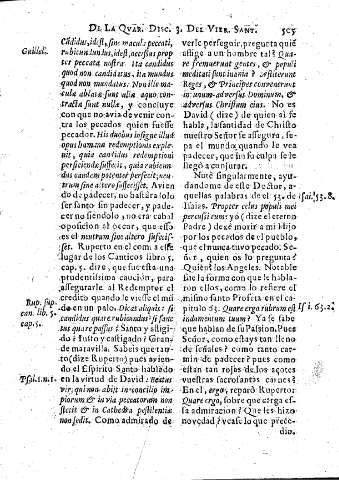 DE LA QUAR. DISC. 3. DEL VIER. SANT. 505
Guillel.
Cãdidus, idest, sine macula peccati,
rubicundus, idest, occisus propter
peccata nostra. Ita candidus
quod non candidatus, ita mundus
quod non mundatus. Non ille
macula ablata sunt ulla, aquo contracta
sunt nulla, y concluye
con que no avia de venir contra
los pecados quien fuesse
pecador. His duobus insigne illud
opus humanæ redemptionis explenit,
quia candidus redemptioni
perficiendæ suffecit, quia rubicundus
eandem potenter perfecit; neutrum
sine altero suffecisset. Aviendo
de padecer, no bastára solo
ser santo sin padecer, y padecer
no siendolo, no era cabal
oposicion al ocear, que esso
es el neutrum sine altero suffecisset.
Ruperto en com. à este
lugar de los Canticos libro 5.
cap. 5. dize, que fue esta una
prudentissima caucion, para
assegurarle al Redemptor el
credito quando le viesse el mundo
en un palo. Dicat aliquis: si
candidus quare rubicundus? si sanctus
quare passus? Santo y afligido?
justo y castigado? Grande
maravilla. Sabeis que tanto
(dize Ruperto) pues aviendo
el Espiritu Santo hablado
en la virtud de David: beatus
vir; qui non abiit in concilio impiorum
& in via peccatorum non
stetit & in Cathedra pestilentiæ
non sedit. Como admirado de
Rup. sup.
can. lib. 5.
cap. 5.
Psal. 1. n. 1.
verle perseguir, pregunta quiẽ
aflige a un hombre tal? Quare
fremuerunt gentes, & populi
meditati sunt inania? Astiterunt
Reges, & Principes convenerunt
in unum adversus Dominum, &
adversus Christum eius. No es
David (dize) de quien al se
habla, la santidad de Christo
nuestro Señor se assegura, sepa
el mundo quando le vea
padecer, que sin su culpa se le
llegò a conjurar.
Notè singularmente, ayudandome
de este Doctor, aquellas
palabras de el 53. de
Isaias. Propter celus populi mei
percussi eum: yo (dize el eterno
Padre) dexè morir a mi hijo
por los pecados de el pueblo,
que el nunca tuvo pecado. Señor,
quien os lo pregunta?
Quiẽ? los Angeles. Notable
fue la forma con que le hablaron
ellos, como lo refiere el
mismo santo Profeta en el capitulo
63. Quare ergo rubrum est
indumentum tuum? Ya se sabe
que hablan de su Passion. Pues
Señor, como estays tan lleno
de señales? como tanto carmin
de padecer? pues como
estan tan rojas de los açotes
vuestras sacrosantas carnes?
En el, ergo, reparò Ruperto:
Quare ergo, sobre que carga essa
admiracion? Que les hizo
novedad? veaselo que precedio,
Isai. 53. 8.
Isi. 63. 2.